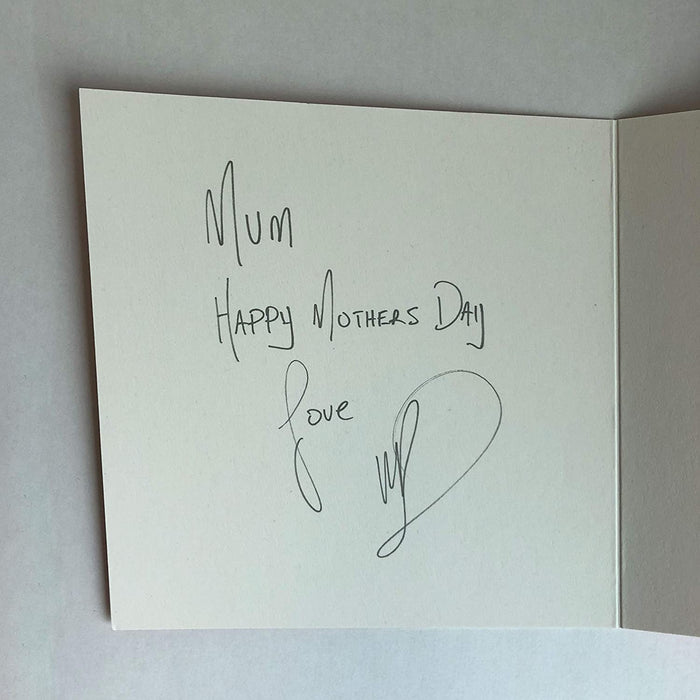 Mum
Happy Mothers Day
Love